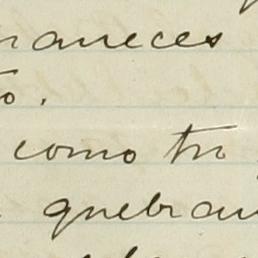 raneces
to.
como tu
quebran